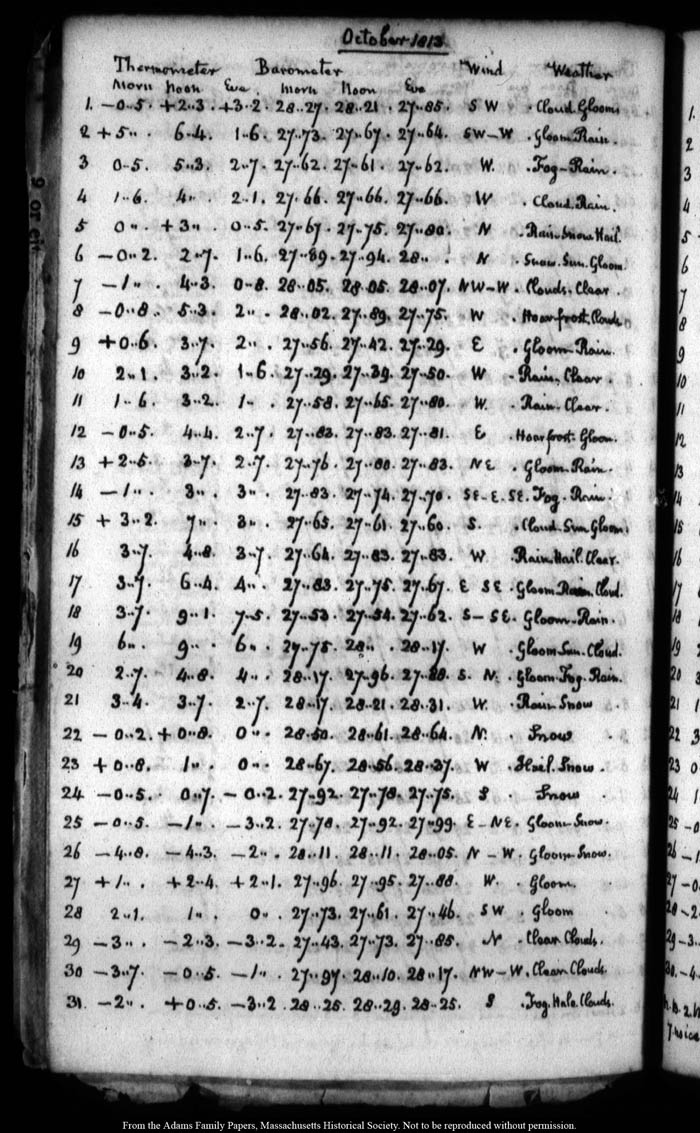 October 1813.
Thermometer Barometer Wind Weather
Morn Noon Eve Morn Noon Eve
1. −0‥5. +2‥3. +3‥2. 28‥27. 28‥21. 27‥85. S W . Cloud. Gloom
2 +5‥ . 6‥4. 1‥6. 27‥73. 27‥67. 27‥64. SW–W . Gloom. Rain.
3 0‥5. 5‥3. 2‥7. 27‥62. 27‥61. 27‥62. W. . Fog. Rain.
4 1‥6. 4‥ . 2‥1. 27‥66. 27‥66. 27‥66. W . Cloud. Rain.
5 0‥ . +3‥ . 0‥5. 27‥67. 27‥75. 27‥80. N . Rain. Snow Hail.
6 −0‥2. 2‥7. 1‥6. 27‥89. 27‥94. 28‥ . N . Snow. Sun. Gloom.
7 −1‥ . 4‥3. 0‥8. 28‥05. 28‥05. 28‥07. NW–W. Clouds. Clear.
8 −0‥8. 5‥3. 2‥ . 28‥02. 27‥89. 27‥75. W . Hoar frost. Clouds
9 +0‥6. 3‥7. 2‥ . 27‥56. 27‥42. 27‥29. E . Gloom. Rain.
10 2‥1. 3‥2. 1‥6. 27‥29. 27‥39. 27‥50. W . Rain. Clear.
11 1‥6 3‥2. 1‥ . 27‥58. 27‥65. 27‥80. W. . Rain. Clear.
12 −0‥5. 4‥4. 2‥7. 27‥83. 27‥83. 27‥81. E . Hoar frost. Gloom.
13 +2‥5. 3‥7. 2‥7. 27‥76. 27‥80. 27‥83. NE . Gloom. Rain.
14 −1‥ . 3‥ . 3‥ . 27‥83. 27‥74. 27‥70. SE–E. SE. Fog. Rain.
15 +3‥2. 7‥ . 3‥ . 27‥65. 27‥61. 27‥60. S. . Cloud Sun Gloom.
16 3‥7. 4‥8. 3‥7. 27‥64. 27‥83. 27‥83. W . Rain. Hail. Clear.
17 3‥7. 6‥4. 4‥ . 27‥83. 27‥75. 27‥67. E SE . Gloom. Rain. Cloud.
18 3‥7. 9‥1. 7‥5. 27‥53. 27‥54. 27‥62. S–SE. Gloom. Rain.
19 6‥ . 9‥ . 6‥ . 27‥75. 28‥ . 28‥17. W . Gloom Sun. Cloud.
20 2‥7. 4‥8. 4‥ . 28‥17. 27‥96. 27‥88. S. N. . Gloom. Fog. Rain.
21 3‥4. 3‥7. 2‥7. 28‥17. 28‥21. 28‥31. W. . Rain Snow
22 −0‥2. +0‥8. 0‥ . 28‥50. 28‥61. 28‥64. N. . Snow
23 +0‥8. 1‥ . 0‥ . 28‥67. 28‥56. 28‥37. W . Hail. Snow.
24 −0‥5. 0‥7. −0‥2. 27‥92. 27‥78. 27‥75. S . Snow
25 −0‥5. −1‥ . −3‥2. 27‥78. 27‥92. 27‥99. E–NE. Gloom. Snow.
26 −4‥8. −4‥3. −2‥ . 28‥11. 28‥11. 28‥05. N–W. Gloom. Snow.
27 +1‥ . +2‥4. +2‥1. 27‥96. 27‥95. 27‥88. W. . Gloom.
28 2‥1. 1‥ . 0‥ . 27‥73. 27‥61. 27‥46. SW . Gloom
29 −3‥ . −2‥3. −3‥2. 27‥43. 27‥73. 27‥85. N . Clear Clouds.
30 −3‥7. −0‥5. −1‥ . 27‥97. 28‥10. 28‥17. NW–W. Clear. Clouds.
31. −2‥ . +0‥5. −3‥2. 28‥25. 28‥29. 28‥25. S . Fog. Halo. Clouds.
From the Adams Family Papers, Massachusetts Historical Society. Not to be reproduced without permission.